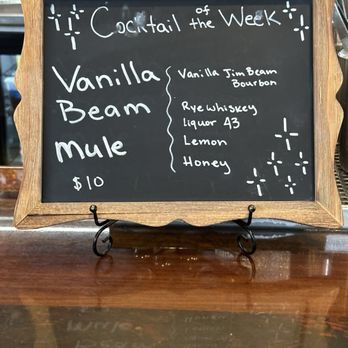 Cocktail of the Week
Vanilla
Beam
Mule
$10
Vanilla Jim Beam
Bourbon
Rye whiskey
liquor 43
Lemon
Honey